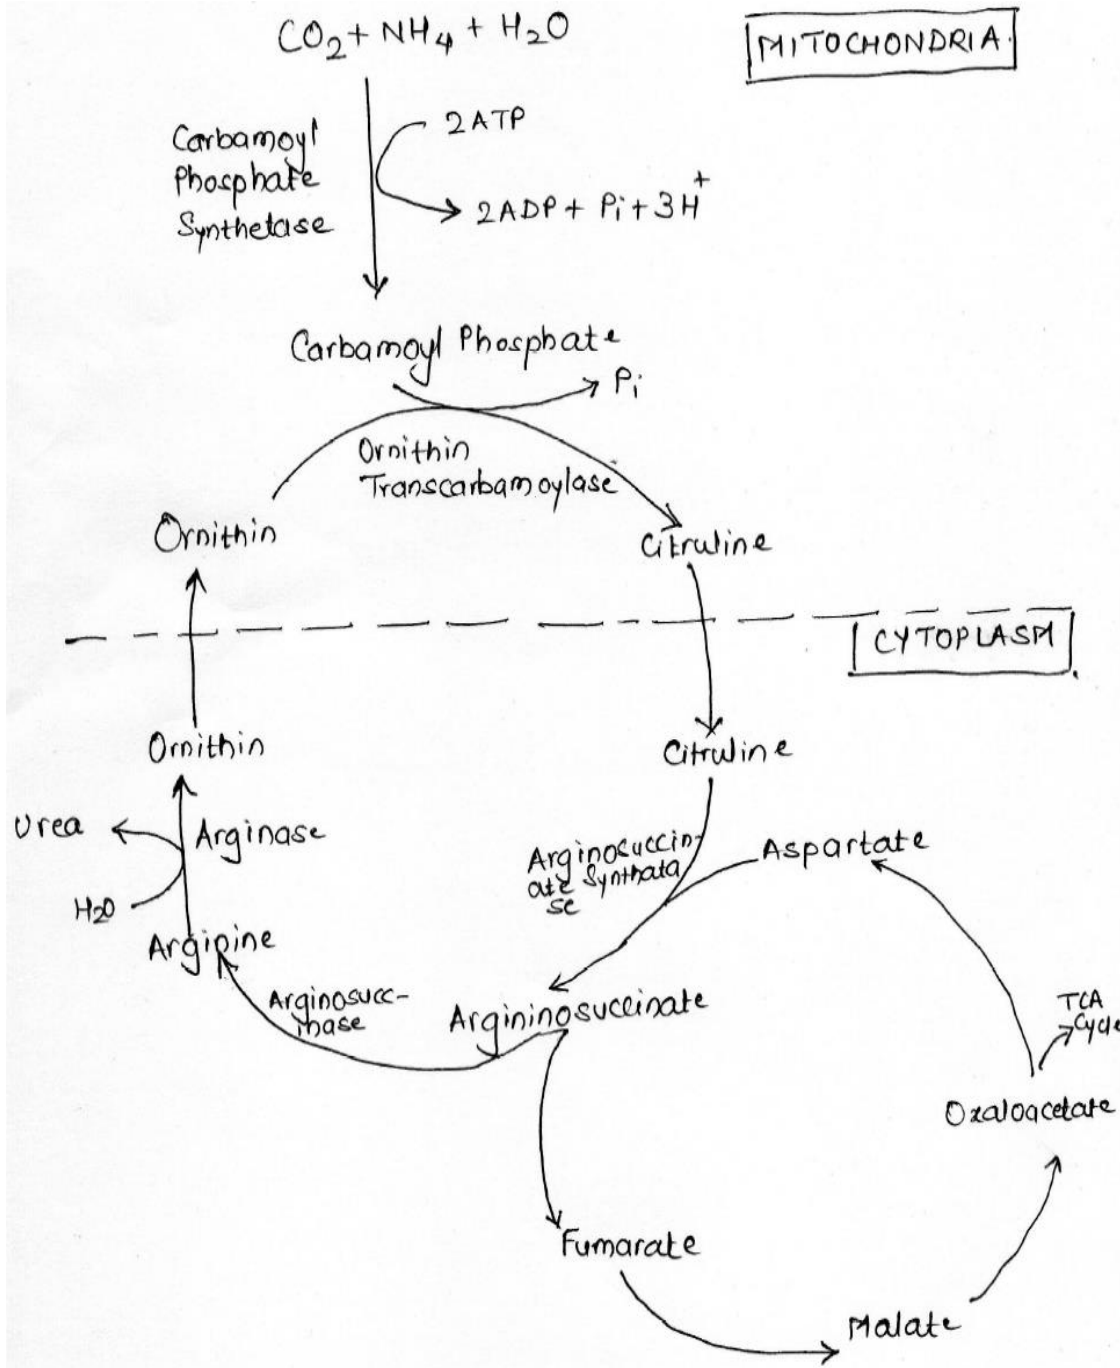 CO2 + NH4 + H2O
MITOCHONDRIA.
2ATP
Carbamoyl
Phosphate
Synthetase
2ADP + Pi + 3H+
Carbamoyl Phosphate
Pi
Ornithin
Transcarbamoylase
Ornithin
Citruline
CYTOPLASM
Ornithin
Citruline
Urea
Arginase
H2O
Arginine
Arginosuccin-
ate Synthata
se
Aspartate
Arginosucc-
inase
Argininosuccinate
TCA
Cycle
Oxaloacetate
Fumarate
Malate